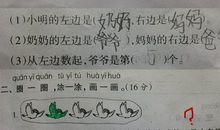 (1)小明的左边是(奶奶),右边是(妈妈)
(2)奶奶的左边是(爷爷),妈妈的右边是(爸
(3)从左边数起,爷爷是第( )个
quān yì quān tú yì tú huà yí huà
二、圈一圈,涂一涂,画一画。(16分)
1.
?